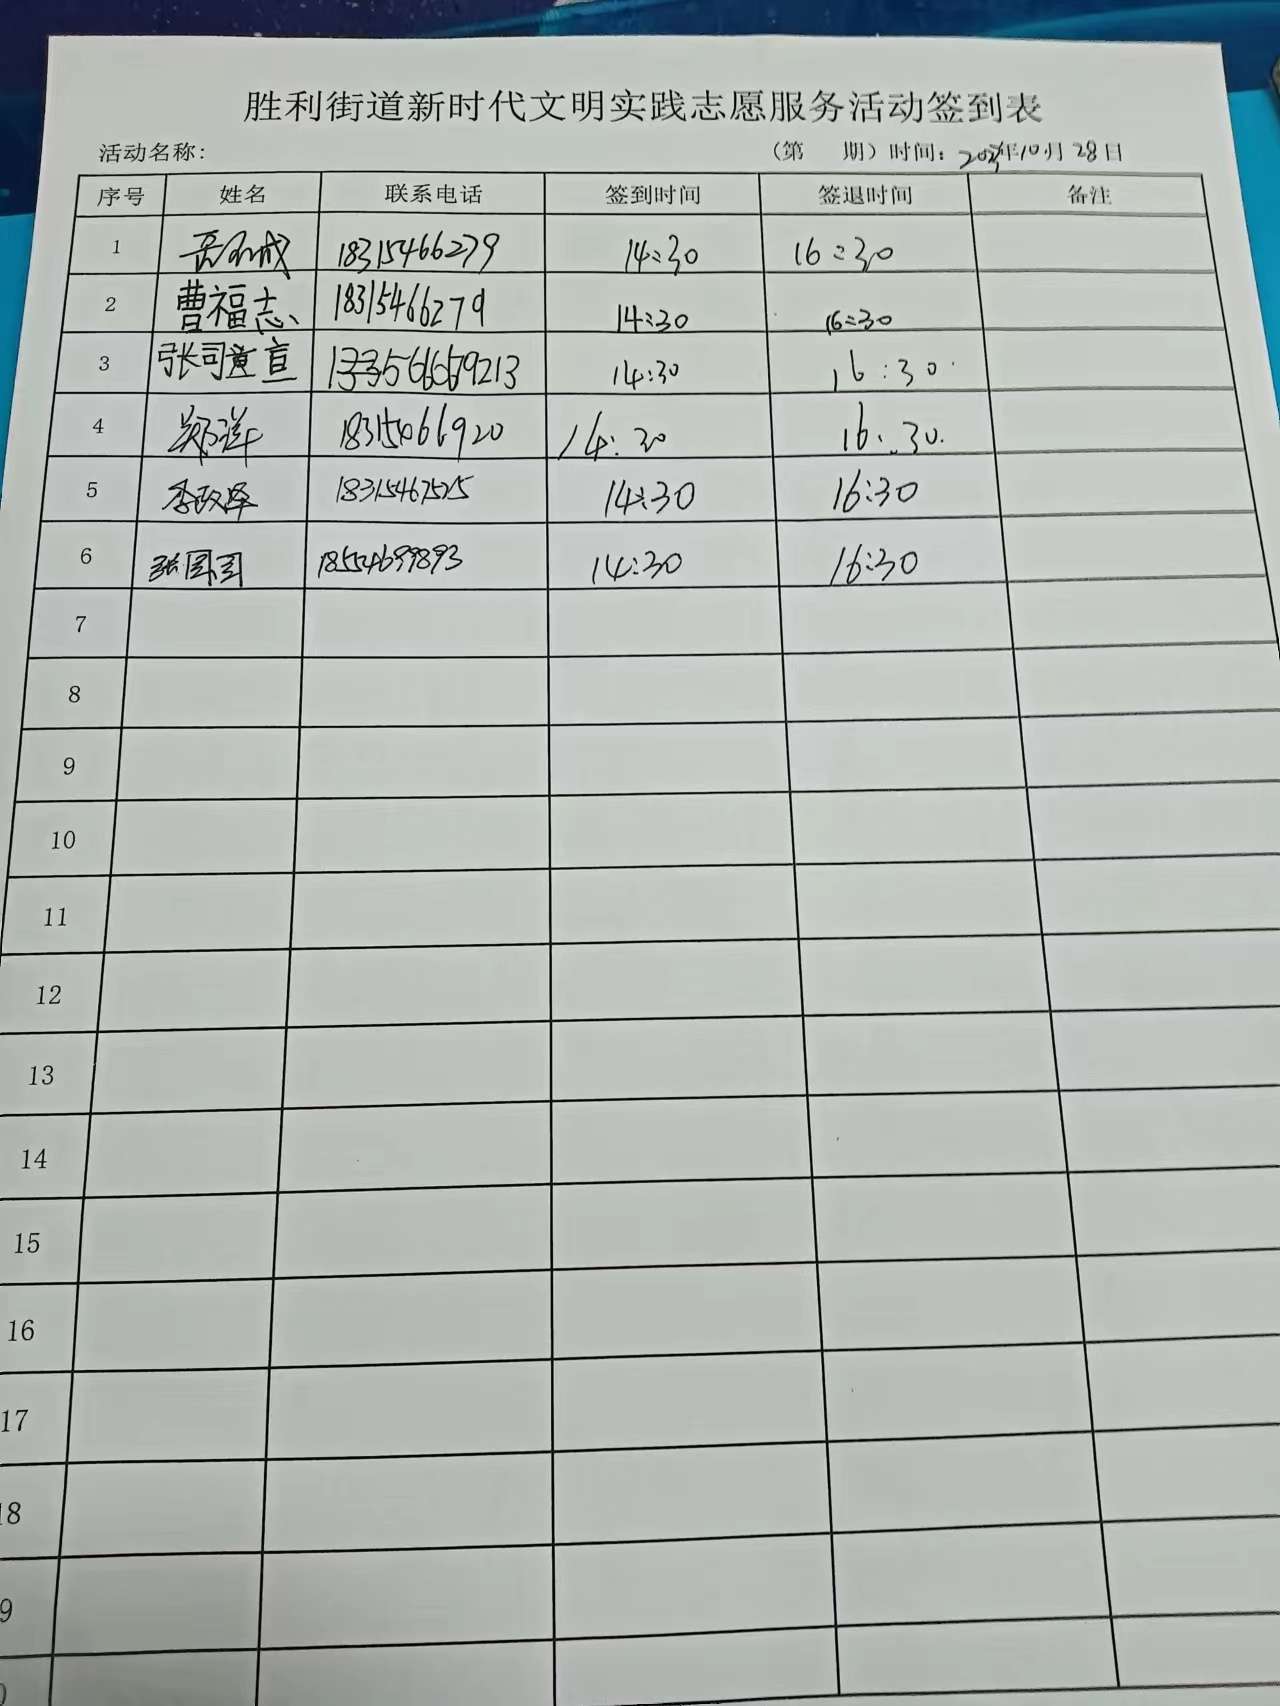 胜利街道新时代文明实践志愿服务活动签到表
活动名称： （第 期）时间： 年10月28日
序号 姓名 联系电话 签到时间 签退时间 备注
1 18315466279 14:30 16:30
2 曹福志 18315466279 14:30 16:30
3 张司童宣 14:30 16:30
4 郑洋 18315066920 14:30 16:30
5 李政泽 18315467515 14:30 16:30
6 18554699893 14:30 16:30
7
8
9
10
11
12
13
14
15
16
17
18
9
0